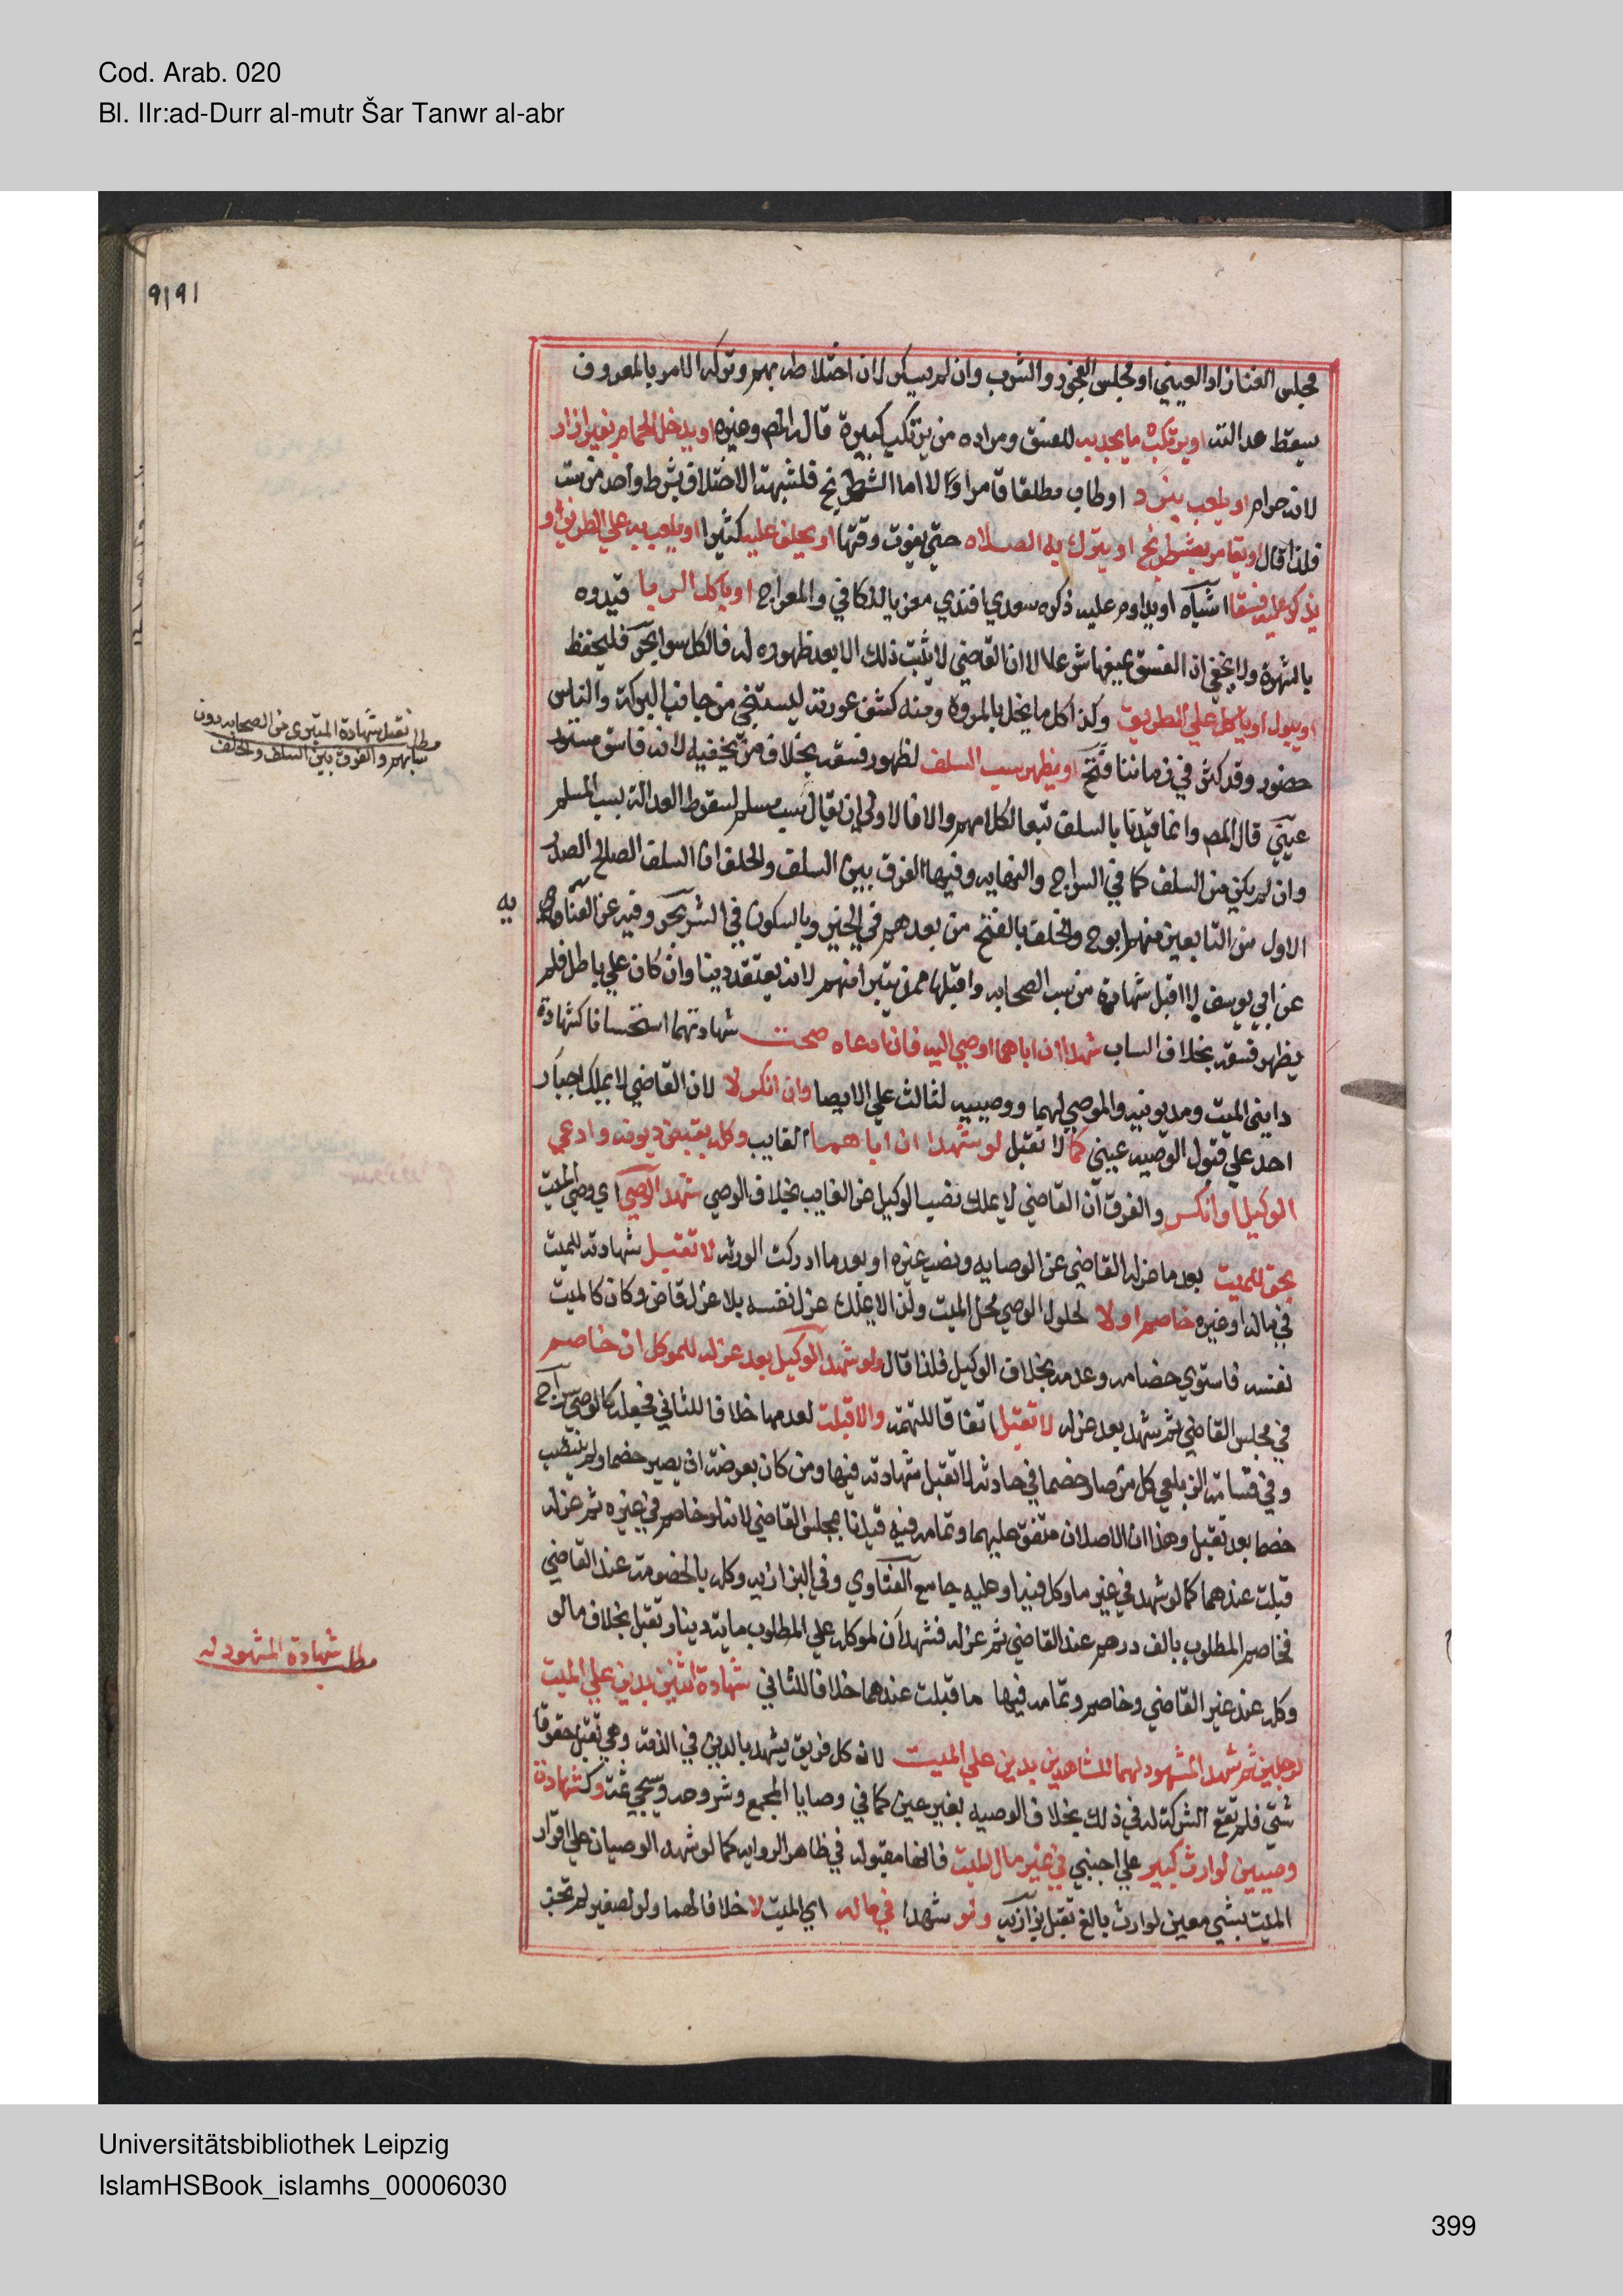 Cod. Arab. 020
Bl. IIr:ad-Durr al-mutr Šar Tanwr al-abr
مجلس الغنا زاد العيني او مجلس الفجور والشرب وان لم يسكر لان اختلاطه بهم وتركه الامر بالمعروف
يسقط عدالته او يرتكب ما يحد به للفسق ومراده من يرتكب كبيرة قاله المص وغيره او يدخل الحمام بغير ازار
لانه حرام او يلعب بنرد او طاب مطلقا قامر او لا اما الشطرنج فلشبهة الاختلاف شرط واحد من ست
فلذا قال او يقامر بشطرنج او يترك به الصلاة حتى يفوت وقتها او يحلف عليه كثيرا او يلعب به علي الطريق او
يذكر عليه فسقا اشباه او يداوم عليه ذكره سعدي افندي معزيا للكافي والمعراج او ياكل الربا قيدوه
بالشهرة ولا يخفي ان الفسق يمنعها شرعا الا ان القاضي لا يثبت ذلك الا بعد ظهوره له فالكل سوا بحر فليحفظ
او يبول او ياكل علي الطريق وكذا كل ما يخل بالمروة ومنه كشف عورته ليستنجي من جانب البركة والناس
حضور وقد كثر في زماننا فتح او يظهر سب السلف لظهور فسقه بخلاف من يخفيه لانه فاسق مستور
عيني قال المص وانما قيدنا بالسلف تبعا لكلامهم والا فالاولي ان يقال سب مسلم لسقوط العدالة بسب المسلم
وان لم يكن من السلف كما في السراج والنهايه وفيها الفرق بين السلف والخلف ان السلف الصالح الصدر
الاول من التابعين منهم ابو ح والخلف بالفتح من بعدهم في الخير وبالسكون في الشر بحر وفيه عن العنايه
عن ابي يوسف لا اقبل شهادة من سب الصحابه واقبلها ممن يتبرا منهم لانه يعتقد دينا وان كان علي باطل فلم
يظهر فسقه بخلاف الساب شهدا ان اباهما اوصي اليه فان ادعاه صحت شهادتهما استحسانا كشهادة
دايني الميت ومديونيه والموصي لهما ووصييه لثالث علي الايصا وان انكر لا لان القاضي لا يملك اجبار
احد علي قبول الوصيه عيني كما لا تقبل لو شهدا ان اباهما الغايب وكله بقبض ديونه وادعي
الوكيل او انكر والفرق ان القاضي لا يملك نصب الوكيل عن الغايب بخلاف الوصي شهد الوصي اي وصي الميت
بحق للميت بعد ما عزله القاضي عن الوصايه ونصب غيره او بعد ما ادركت الورثه لا تقبل شهادته للميت
في ماله او غيره خاصم او لا لحلول الوصي محل الميت ولذا لا يملك عزل نفسه بلا عزل قاض وكان كالميت
نفسه فاستوي خصامه وعدمه بخلاف الوكيل فلذا قال ولو شهد الوكيل بعد عزله للموكل ان خاصم
في مجلس القاضي ثم شهد بعد عزله لا تقبل اتفاقا للتهمة والا قبلت لعدمها خلافا للثاني فجعله كالوصي سراج
وفي قسامة الزيلعي كل من صار خصما في حادثه لا تقبل شهادته فيها ومن كان بعرضة ان يصير خصما ولم ينتصب
خصما بعد تقبل وهذان الاصلان متفق عليهما وتمامه فيه قيدنا بمجلس القاضي لانه لو خاصم في غيره ثم عزله
قبلت عندهما كما لو شهد في غير ما وكل فيه او عليه جامع الفتاوي وفي البزازيه وكله بالخصومة عند القاضي
فخاصم المطلوب بالف درهم عند القاضي ثم عزله فشهد ان لموكله علي المطلوب ماية دينار تقبل بخلاف ما لو
وكله عند غير القاضي وخاصم وتمامه فيها ما قبلت عندهما خلافا للثاني شهادة اثنين بدين علي الميت
لرجلين ثم شهد المشهود لهما للشاهدين بدين علي الميت لان كل فريق يشهد بالدين في الذمة وهي تقبل حقوقا
شتي فلم تقع الشركة له في ذلك بخلاف الوصيه بغير عين كما في وصايا المجمع وشروحه وسيجي ثمة وكشهادة
وصيين لوارث كبير علي اجنبي في غير مال الميت فانها مقبوله في ظاهر الروايه كما لو شهد الوصيان علي اقرار
الميت بشي معين لوارث بالغ تقبل بزازيه ولو شهدا في ماله اي الميت لا خلافا لهما ولو لصغير لم تجز
مطل تقبل شهادة المتبري من الصحابه دون
سابهم والفرق بين السلف والخلف
مطل شهادة المشهود له
Universitätsbibliothek Leipzig
IslamHSBook_islamhs_00006030
399